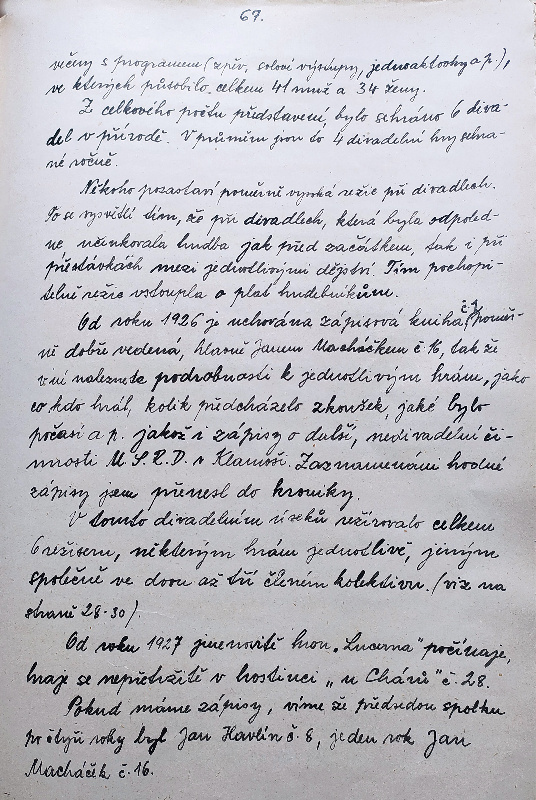 67.
večery s programem (zpěv, solové výstupy, jednoaktovky a p.),
ve kterých působilo celkem 41 muž a 34 ženy.
Z celkového počtu představení, bylo sehráno 6 diva-
del v přírodě. V průměru jsou to 4 divadelní hry sehra-
né ročně.
Někoho pozastaví poměrně vysoká režie při divadlech.
To se vysvětlí tím, že při divadlech, která byla odpoled-
ne účinkovala hudba jak před začátkem, tak i při
přestávkách mezi jednotlivými dějství. Tím pochopi-
telně režie vstoupla o plat hudebníkům.
č.1
Od roku 1926 je uchována zápisová kniha, poměr-
ně dobře vedená, hlavně Janem Macháčkem č 16, tak že
v ní naleznete podrobnosti k jednotlivým hrám, jako
co kdo hrál, kolik předcházelo zkoušek, jaké bylo
počasí a p. jakož i zápisy o další, nedivadelní či-
nnosti M.S.R.D. v Klamoši. Zaznamenání hodné
zápisy jsem přenesl do kroniky.
V tomto divadelním úseků režírovalo celkem
6 režiserů, některým hrám jednotlivě, jiným
společně ve dvou až tří členém kolektivu. (viz na
straně 28-30).
Od roku 1927 jmenovitě hrou „Lucerna" počínaje,
hraje se nepřetržitě v hostinci „u Chárů" č. 28.
Pokud máme zápisy, víme že předsedou spolku
po čtyři roky byl Jan Havlín č. 8, jeden rok Jan
Macháček č. 16.